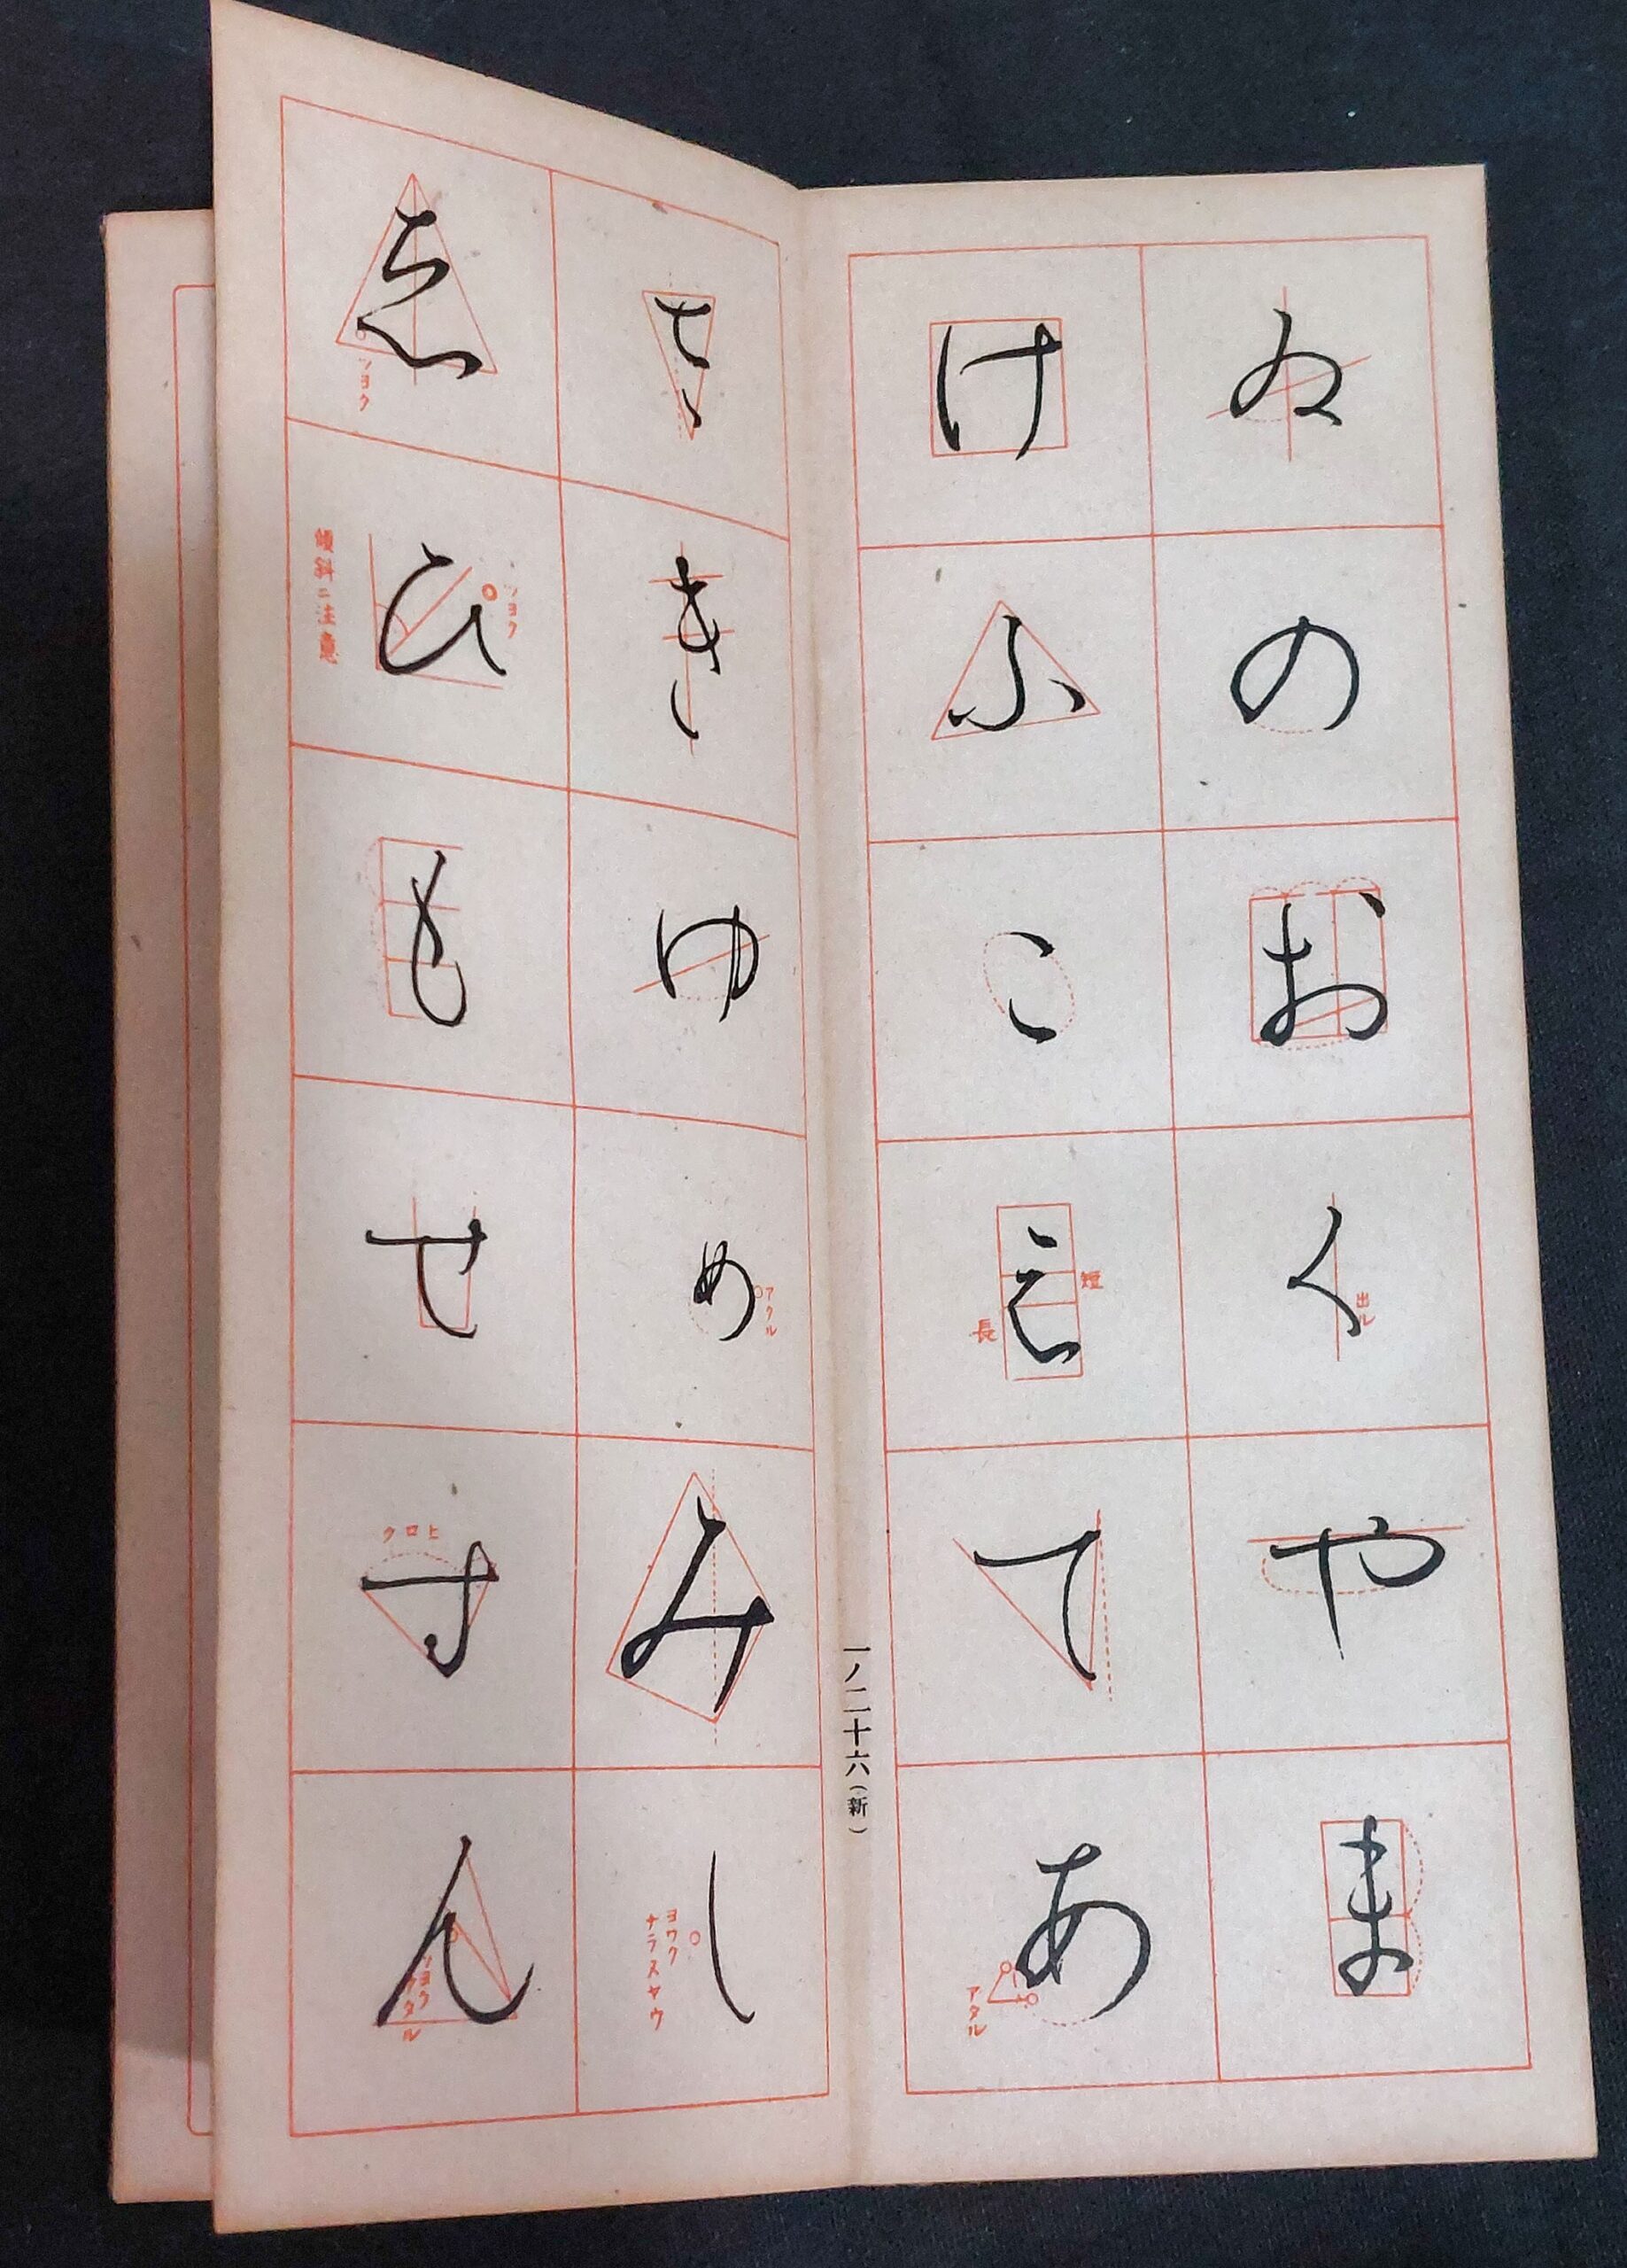 ゐのおくやま
出ル
けふこえてあ
短
長
アタル
一ノ二十六（新）
さきゆめみし
アクル
ヨワク
ナラヌヤウ
ゑひもせすん
ツヨク
ツヨク
傾斜ニ注意
ヒロク
ツヨク
アタル